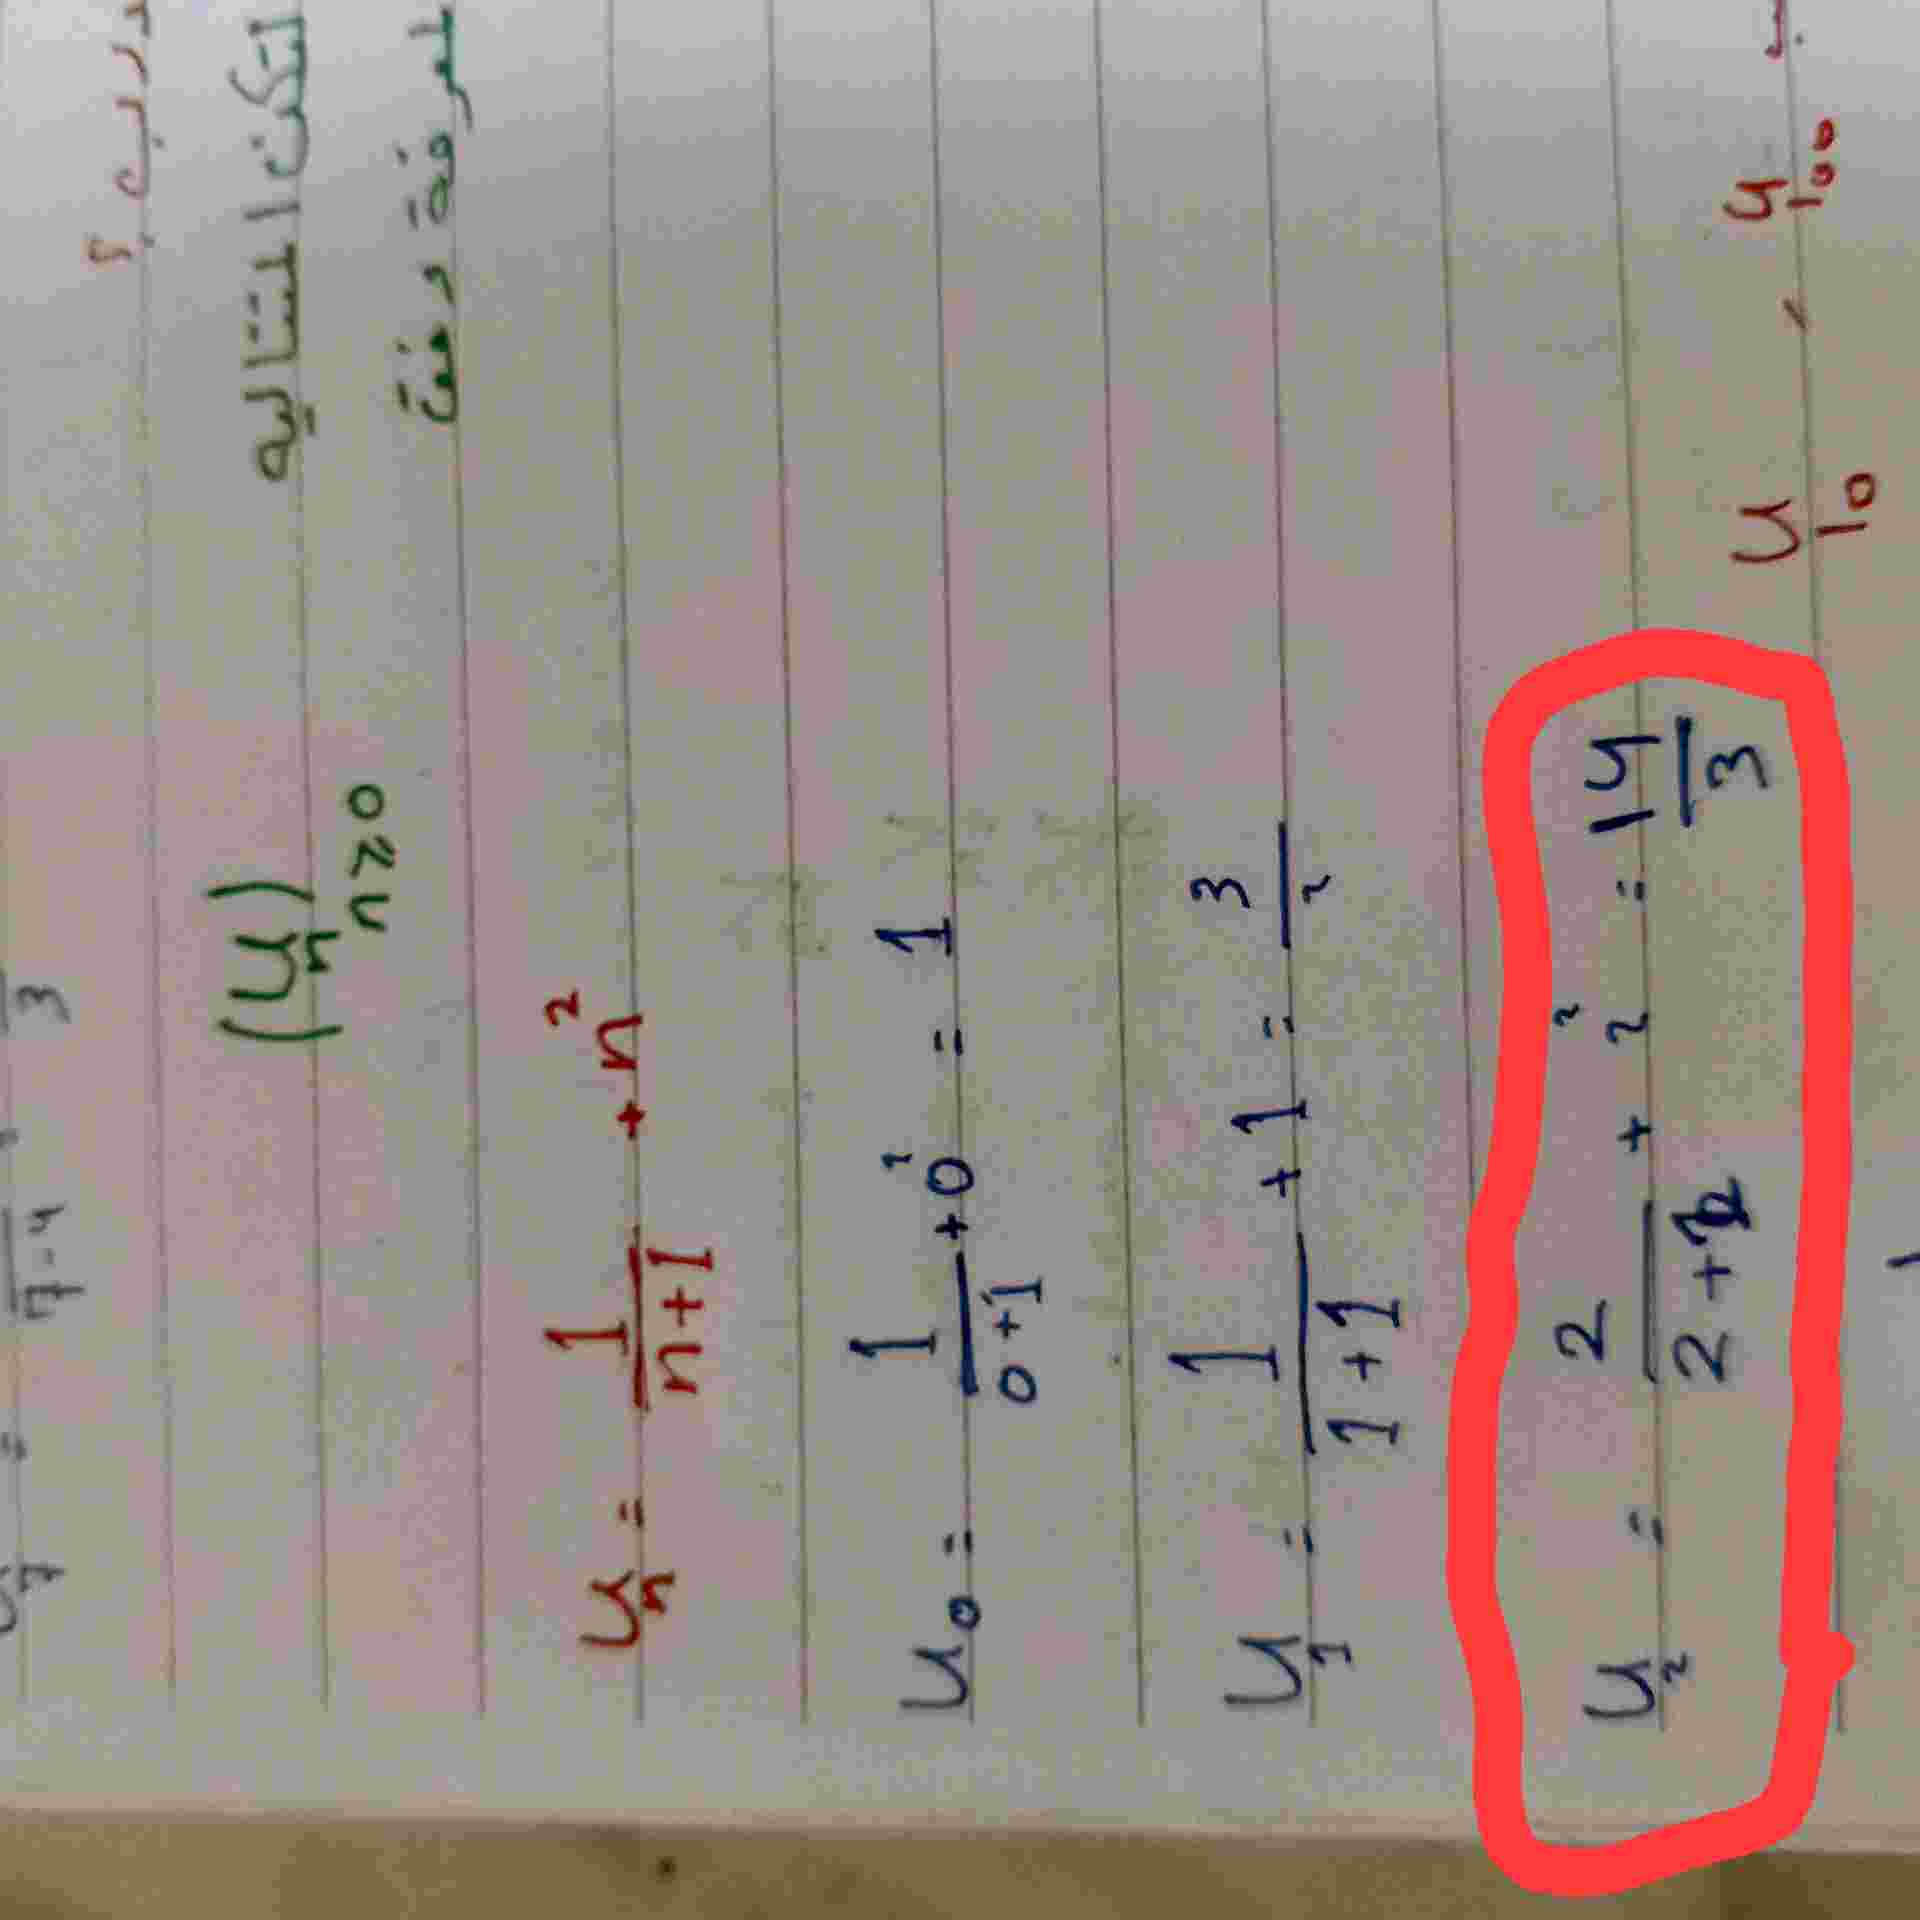 7-4 3
(Uₙ)n≥0 لتكن المتتالية
معرفة وفق
Uₙ = 1/(n+1) + n²
U₀ = 1/(0+1) + 0² = 1
U₁ = 1/(1+1) + 1 = 3/2
U₂ = 2/(2+1) + 2² = 14/3
U₁₀ , U₁₀₀